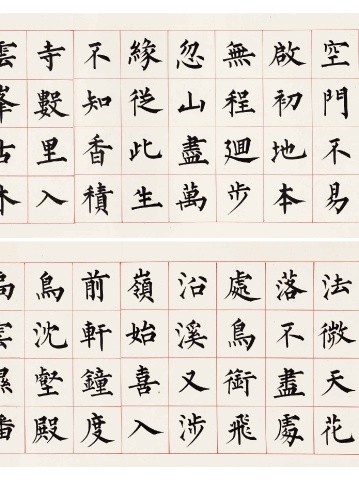 空門不易
啟初地本
無程迴步
忽山盡萬
緣從此生
不知香積
寺數里入
雲峯古木
法微天花
落不盡處
處鳥銜飛
沿溪又涉
嶺始喜入
前軒鐘度
鳥沈壑殿
扃雲